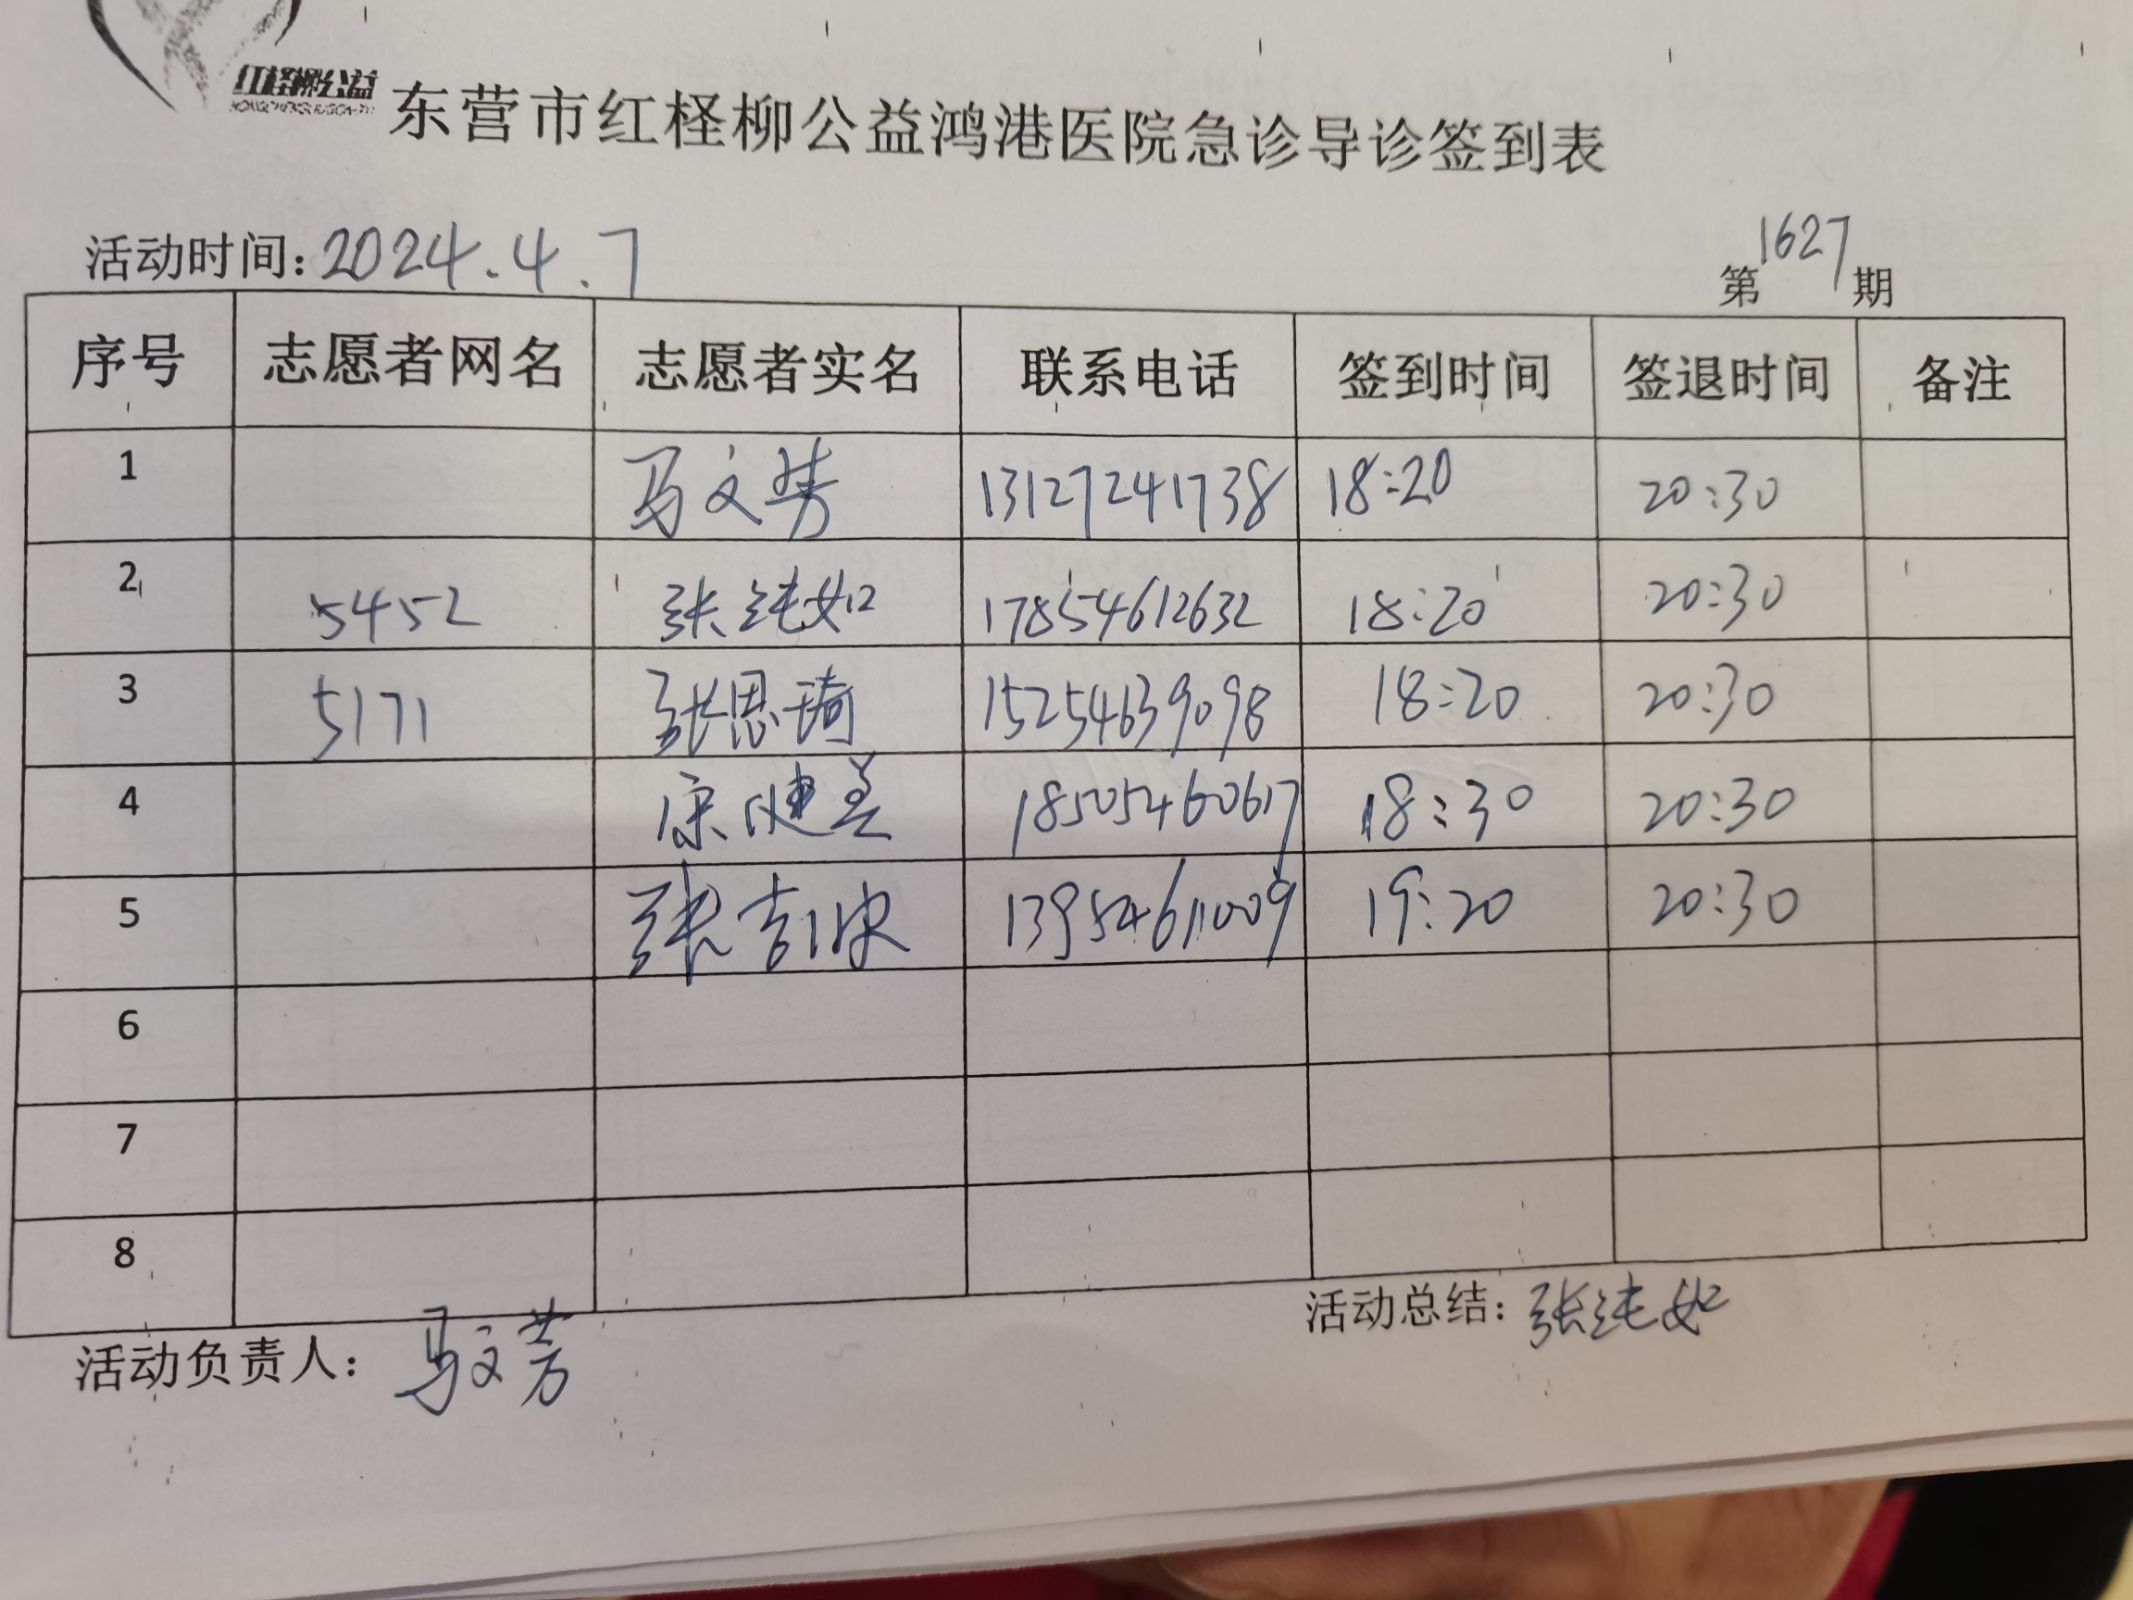 红柽柳公益
东营市红柽柳公益鸿港医院急诊导诊签到表
活动时间:2024.4.7
第1627期
序号 志愿者网名 志愿者实名 联系电话 签到时间 签退时间 备注
1 马文芳 13127241738 18:20 20:30
2 5452 张纯如 17854612632 18:20 20:30
3 5171 张思琦 15254639098 18:20 20:30
4 宋健美 18505460617 18:30 20:30
5 张吉 13954611009 19:20 20:30
6
7
8
活动总结:张纯如
活动负责人:马文芳